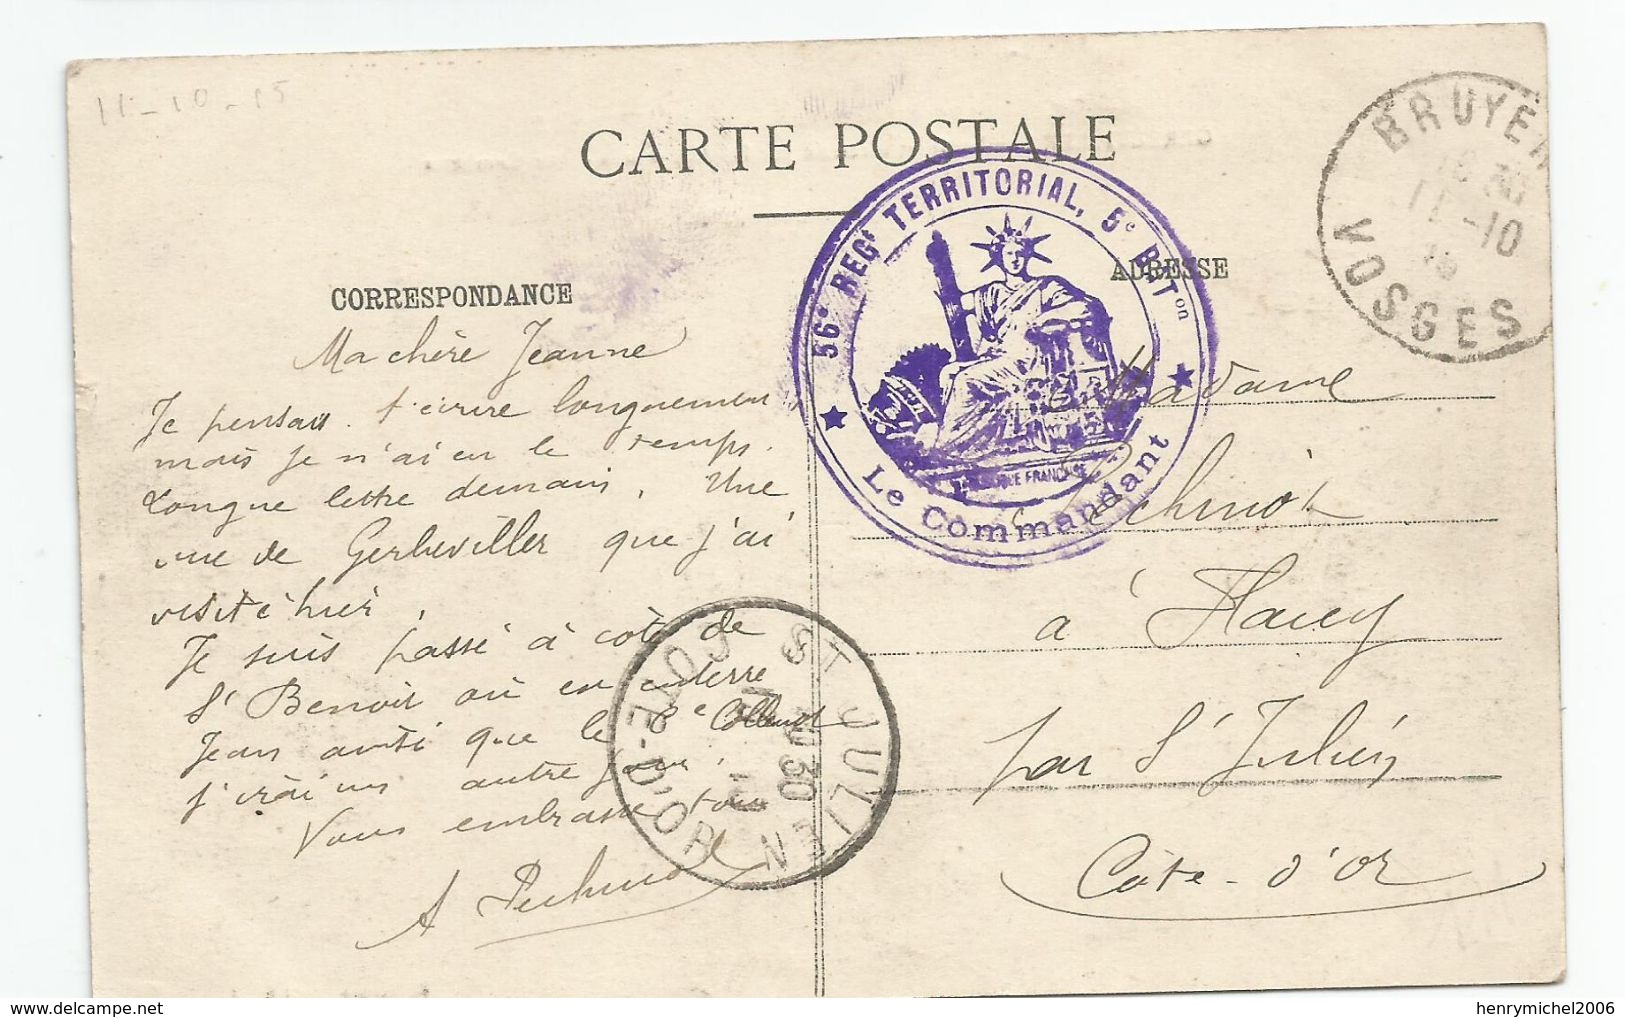 11-10-15
CARTE POSTALE
CORRESPONDANCE
ADRESSE
Ma chère Jeanne
Je pensais t'écrire longuement
mais je n'ai eu le temps.
Longue lettre demain. Une
vue de Gerbeviller que j'ai
visité hier.
Je suis passé à côté de
St Benoit où est enterré
Jean ainsi que le
j'irai un autre jour.
Vous embrasse tous
A Pechinot
Madame
Pechinot
à Flacey
par St Julien
Côte-d'or
56e REGt TERRITORIAL, 5e BATon
REPUBLIQUE FRANCAISE
Le Commandant
BRUYER
11-10
15
VOSGES
ST JULIEN
COTE-D'OR
henrymichel2006